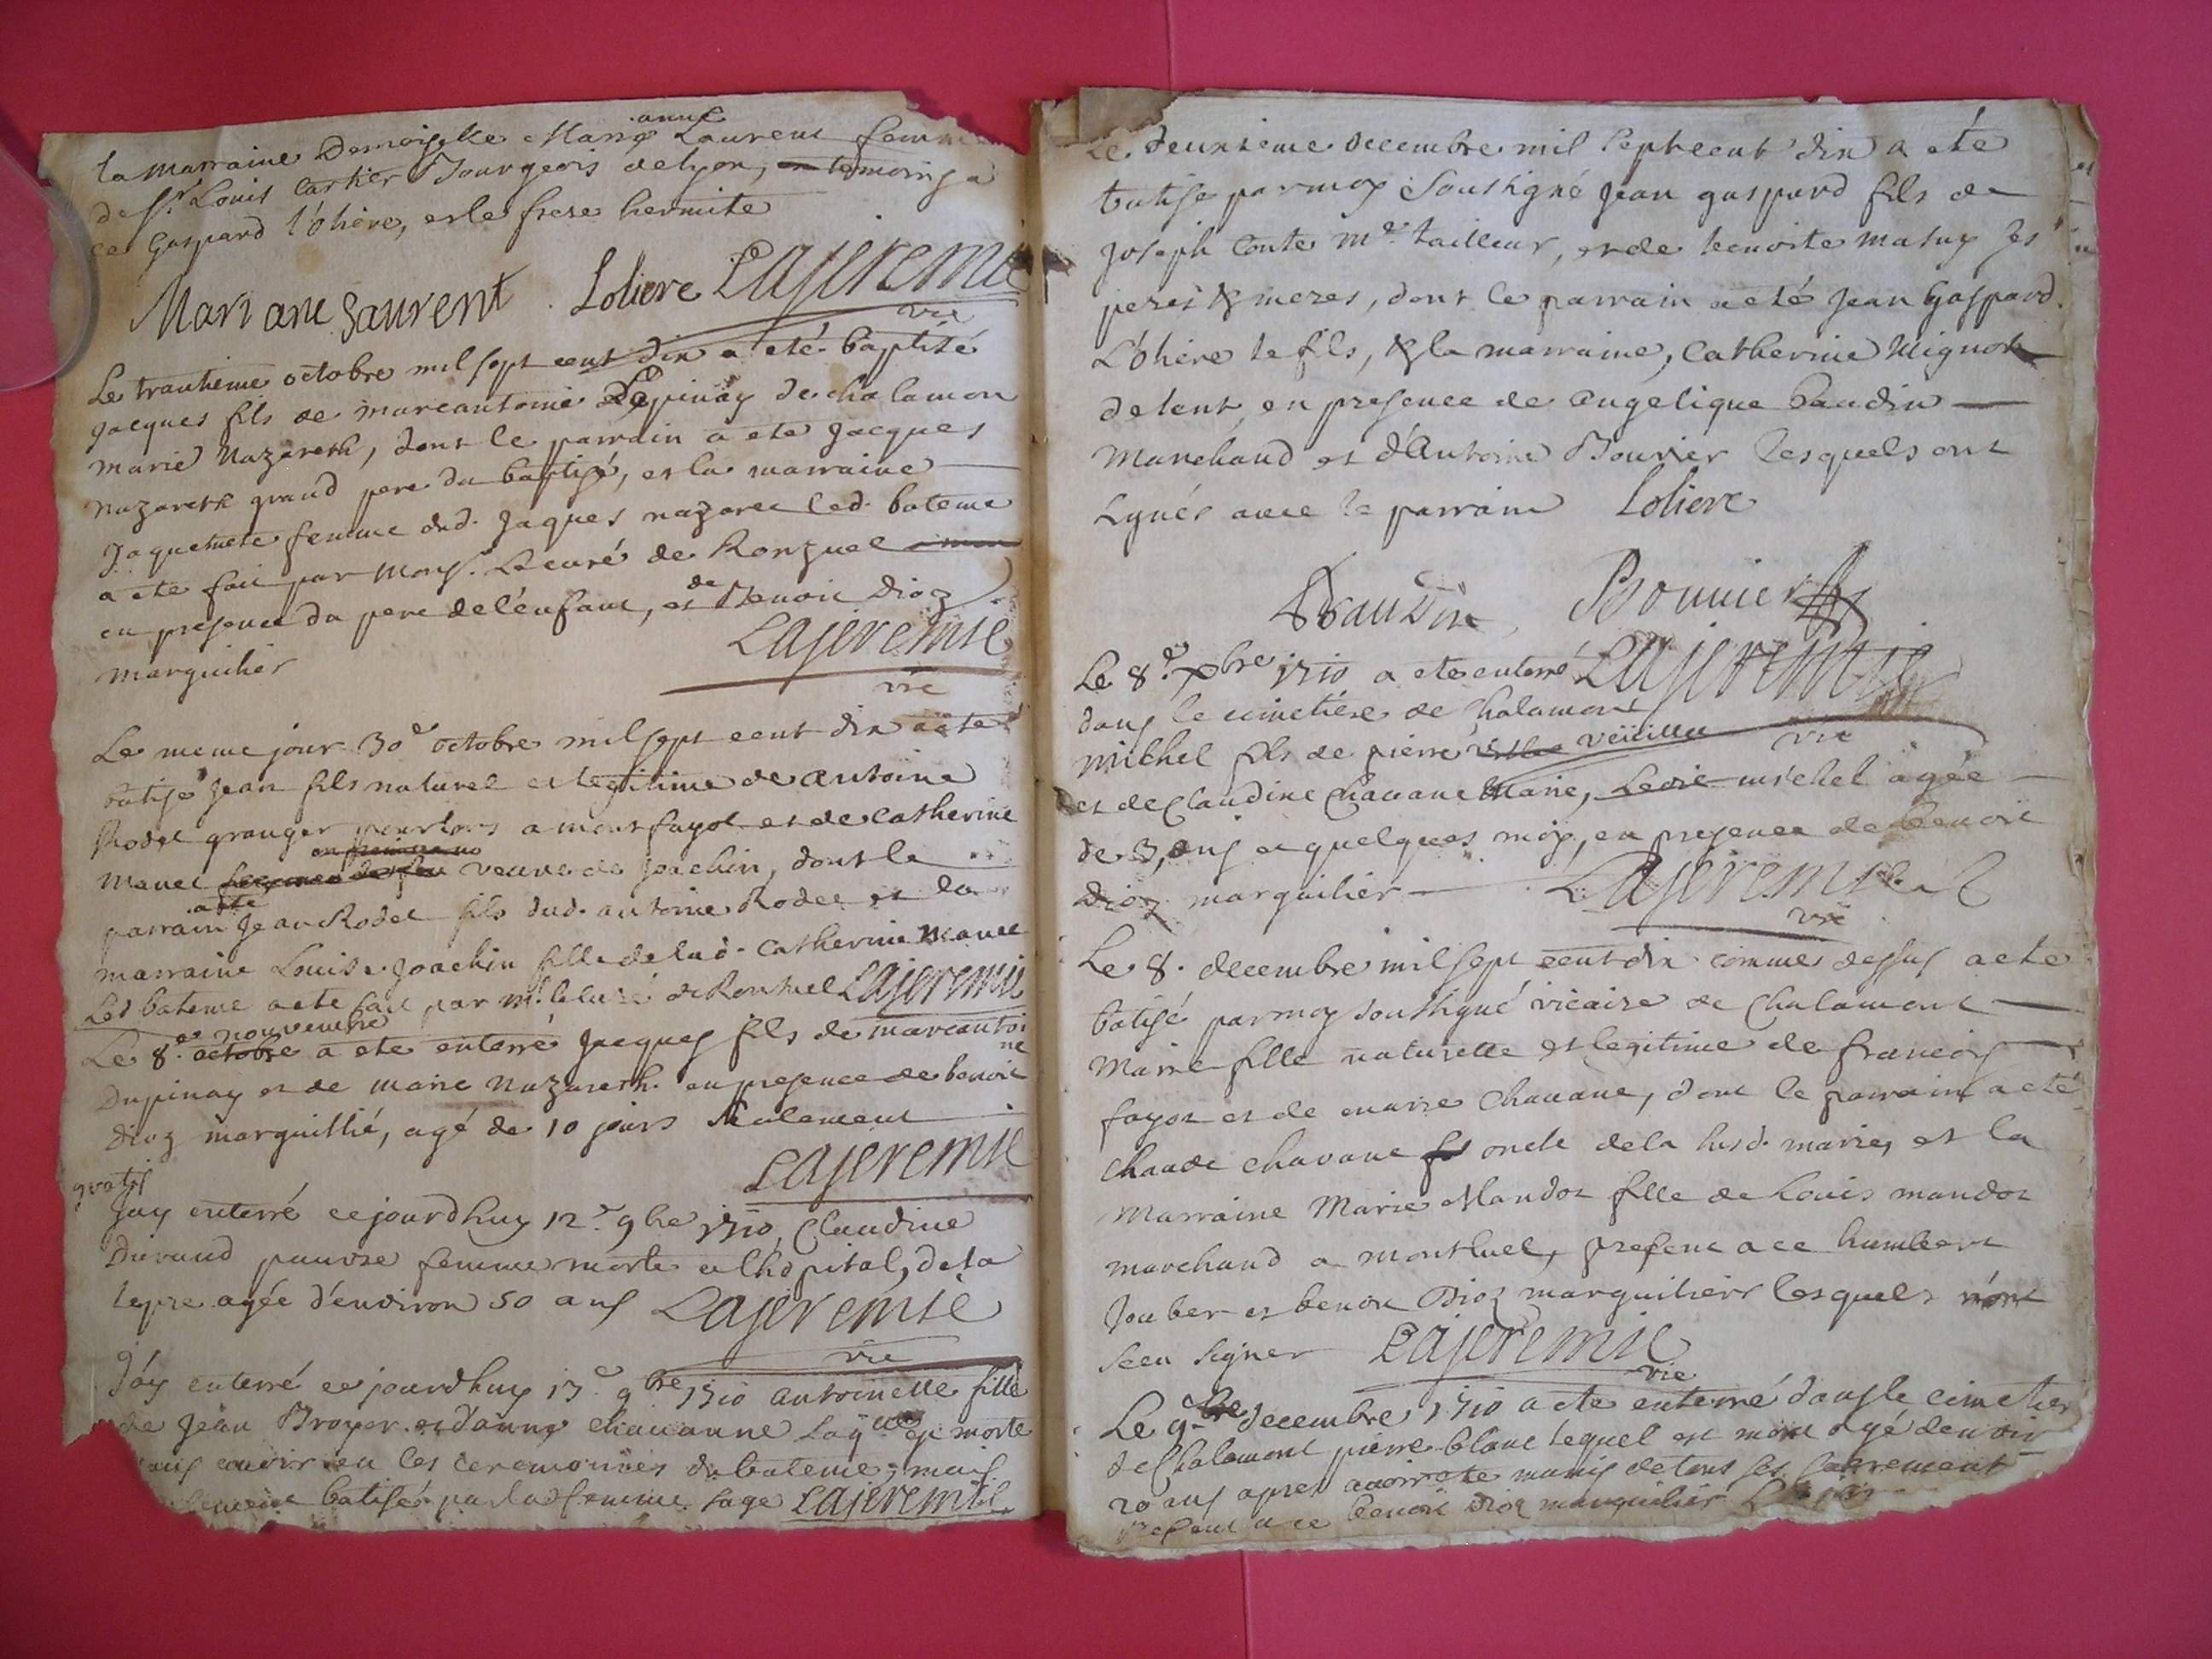 la marraine Demoiselle Marie anne Laurent femme
de Sr. Louis Cartier Bourgeois de lyon, temoins a
ce Gaspard l'ohière, et le frere hermite
Mariane Laurent Loliere Lajeremie
vic
Le trantieme octobre mil sept cent dix a eté baptisé
Jacques fils de marcantoine Dupinay de chalamon
marie Nazareth, dont le parrain a eté Jacques
Nazareth grand pere du baptisé, et la marraine
Jaquemete femme dud. Jaques nazaret led. bateme
a eté fait par Mons. Le curé de Ronzuel
en presence du pere de l'enfant, et de Benoit Dioz
marguilier Lajeremie
vic
Le meme jour 30e octobre mil sept cent dix a eté
batisé Jean fils naturel et legitime de antoine
Rodet granger pourlors a montfayol et de catherine
Manet veuve de Joachin, dont le
parrain a eté Jean Rodet fils dud. antoine Rodet et la
marraine Louise Joachin fille de lad. Catherine Manet
Led bateme a eté fait par Mr. le curé de Ronzuel Lajeremie
Le 8e. octobre nouvembre a eté enterré Jacques fils de marcantoi
ne
Dupinay et de marie Nazareth en presence de benoit
Dioz marguillié, agé de 10 jours seulement
Lajeremie
gratis
Jay enterré ce jourdhuy 12e 9bre 1710, Claudine
Durand pauvre femme morte a lhopital, de la
lepre agée d'environ 50 ans Lajeremie
vic
J'ay enterré ce jourdhuy 13e 9bre 1710 antoinette fille
de Jean Broyer et d'anne chavanne morte
sans avoir eu les ceremonies du bateme, mais
batisée par la femme sage Lajeremie
Le deuxieme decembre mil sept cent dix a eté
batisé par moy soussigné Jean gaspard fils de
Joseph Conte me. tailleur, et de benoite matuy ses
peres & meres, dont le parrain a eté Jean Gaspard
L'ohière le fils, & la marraine, Catherine Mignot
de lent, en presence de angelique Baudin
Marchand et d'Antoine Bouvier lesquels ont
signés avec le parrain Loliere
Baudin Bouvier
Le 8e. xbre 1710 a eté enterré Lajeremie
dans le cimetière de Chalamont
vic
michel fils de pierre veüillet
et de Claudine Chavane Marie, michel agée
de 3 ans et quelques moys, en presence de Benoit
Dioz marguilier Lajeremie
vic
Le 8. decembre mil sept cent dix comme dessus a eté
batisé par moy soussigné vicaire de Chalamont
Marie fille naturelle et legitime de francois
fayot et de marie Chavane, dont le parrain a eté
Claude chavane oncle de la susd. marie, et la
marraine Marie Mandot fille de Louis mandot
marchand a montluel, present a ce humbert
Jouber et benoit Dioz marguiliers lesquels n'ont
sceu signer Lajeremie
vic
Le 9e decembre 1710 a eté enterré dans le cimetier
de Chalamont pierre blanc lequel est mort agé denvir
20 ans apres avoir eté munis de tous ses sacrement
present a ce benoit Dioz marguilier